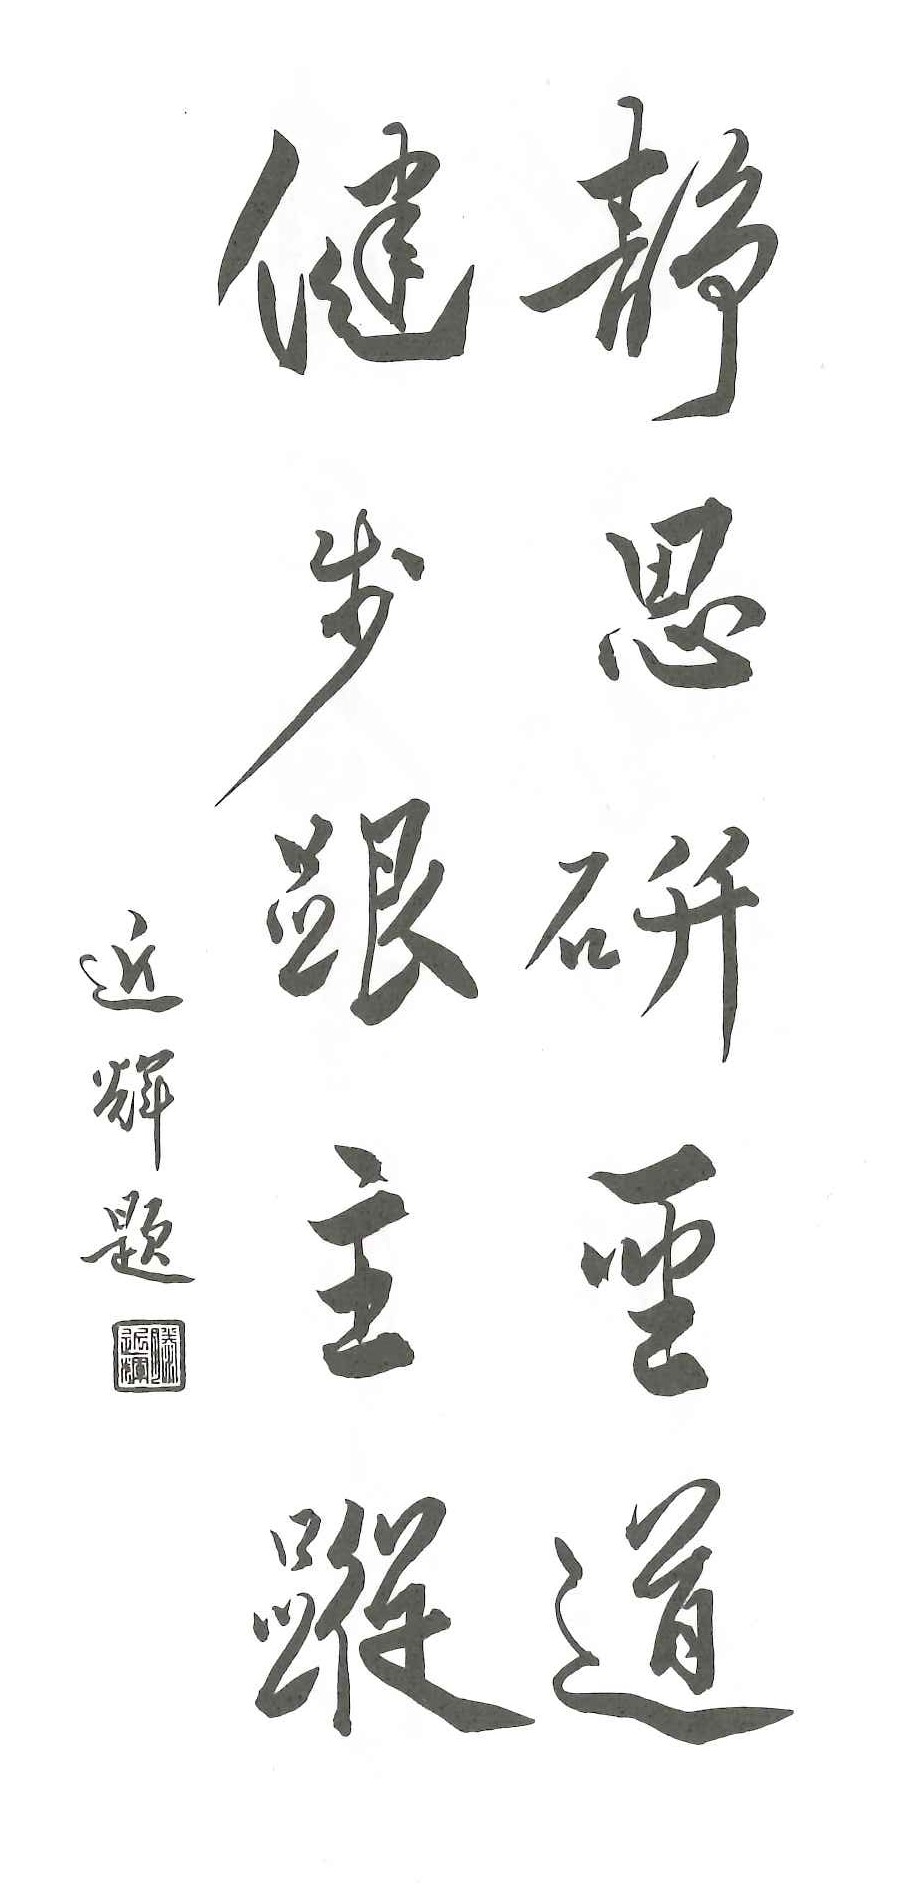 靜思研聖道
健步跟主蹤
近輝題
滕近輝